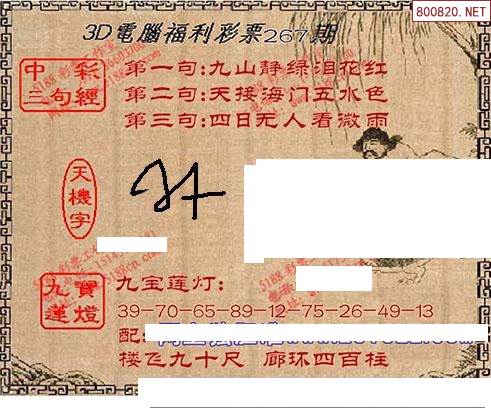 800820.NET
3D電腦福利彩票267期
中彩
三句經
第一句:九山静绿泪花红
第二句:天接海门五水色
第三句:四日无人看微雨
天機字
九寶
蓮燈
九宝莲灯:
39-70-65-89-12-75-26-49-13
配:
楼飞九十尺 廊环四百柱